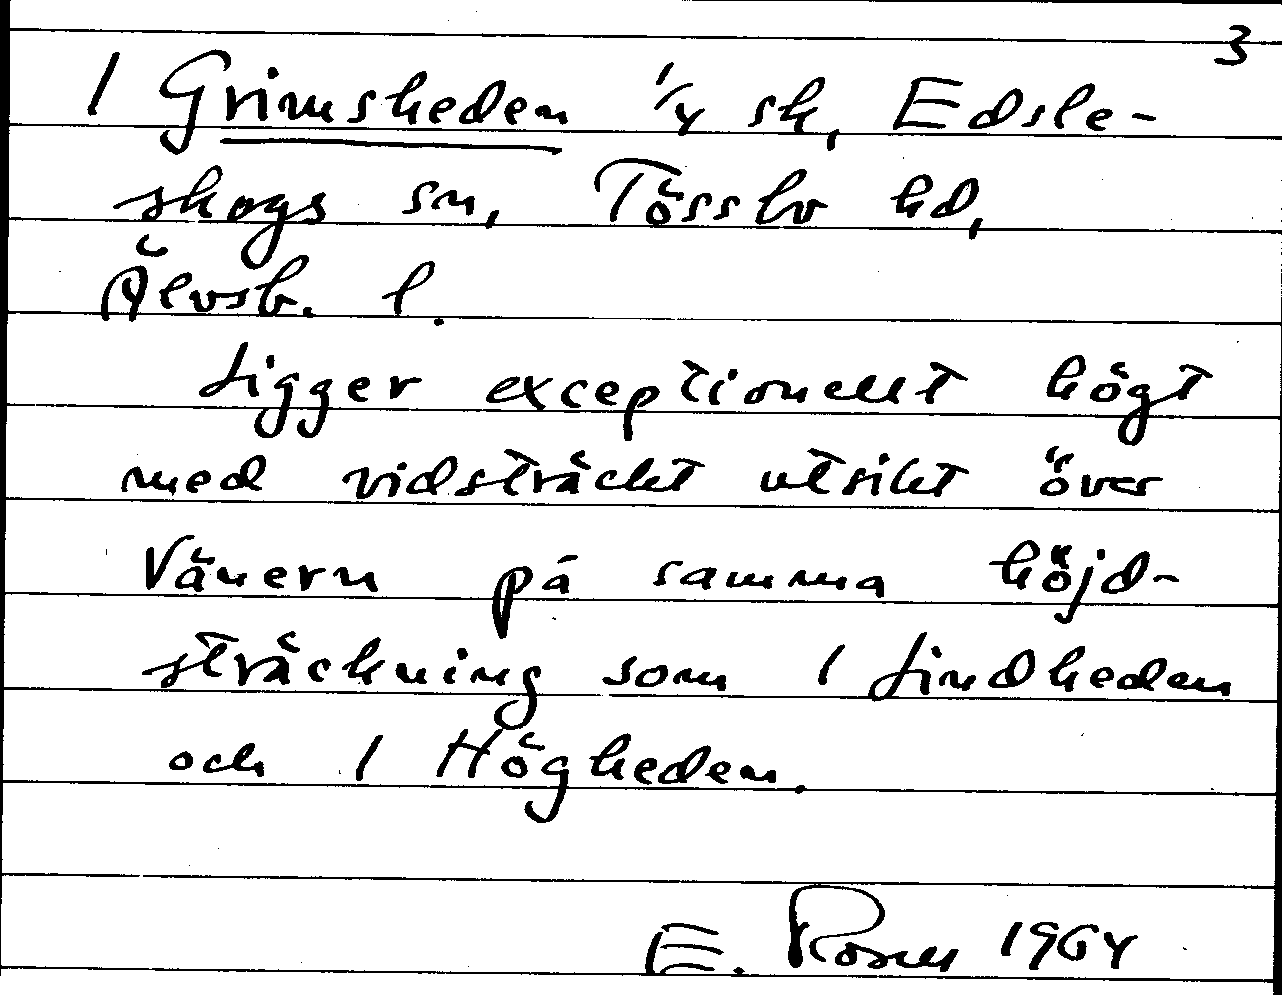 3
1 Grimsheden 1/4 sk, Edsle-
skogs sn, Tössbo hd,
Älvsb. l.
Ligger exceptionellt högt
med vidsträckt utsikt över
Vänern på samma höjd-
sträckning som 1 Lindheden
och 1 Högheden.
E. Rosell 1964